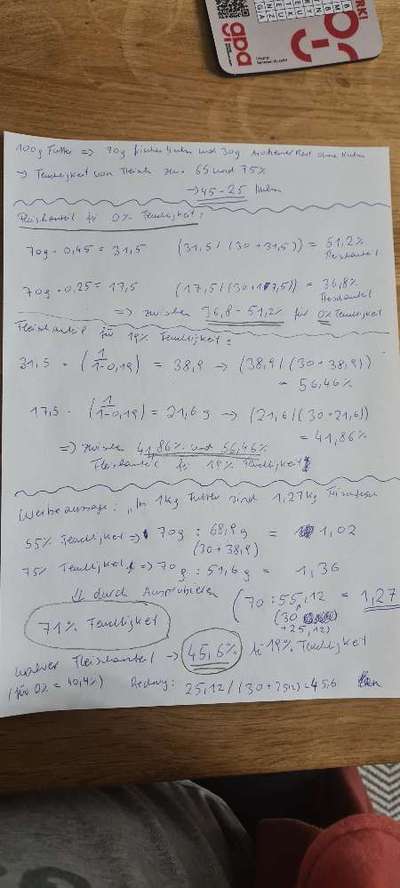 gpa
100g Futter => 70g frisches Huhn und 30g trockener Rest ohne Huhn
-> Feuchtigkeit von Fleisch zw. 55 und 75%
-> 45-25 Huhn
Fleischanteil für 0% Feuchtigkeit:
70g · 0,45 = 31,5 (31,5 / (30 + 31,5)) = 51,2% Fleischanteil
70g · 0,25 = 17,5 (17,5 / (30 + 17,5)) = 36,8% Fleischanteil
=> zwischen 36,8 - 51,2% für 0% Feuchtigkeit
Fleischanteil für 19% Feuchtigkeit:
31,5 · (1/1-0,19) = 38,9 -> (38,9 / (30 + 38,9))
= 56,46%
17,5 · (1/1-0,19) = 21,6g -> (21,6 / (30 + 21,6))
= 41,86%
=> zwischen 41,86% und 56,46%
Fleischanteil für 19% Feuchtigkeit
Werbeaussage: "In 1kg Futter sind 1,27kg
55% Feuchtigkeit => 70g : 68,9g = 1,02
(30 + 38,9)
75% Feuchtigkeit => 70g : 51,6g = 1,36
durch Ausprobieren (70 : 55,12 = 1,27
(30
+ 25,12)
71% Feuchtigkeit
wahrer Fleischanteil -> 45,6% bei 19% Feuchtigkeit
(für 0% = 40,4%) Rechnung: 25,12 / (30 + 25,12) = 45,6